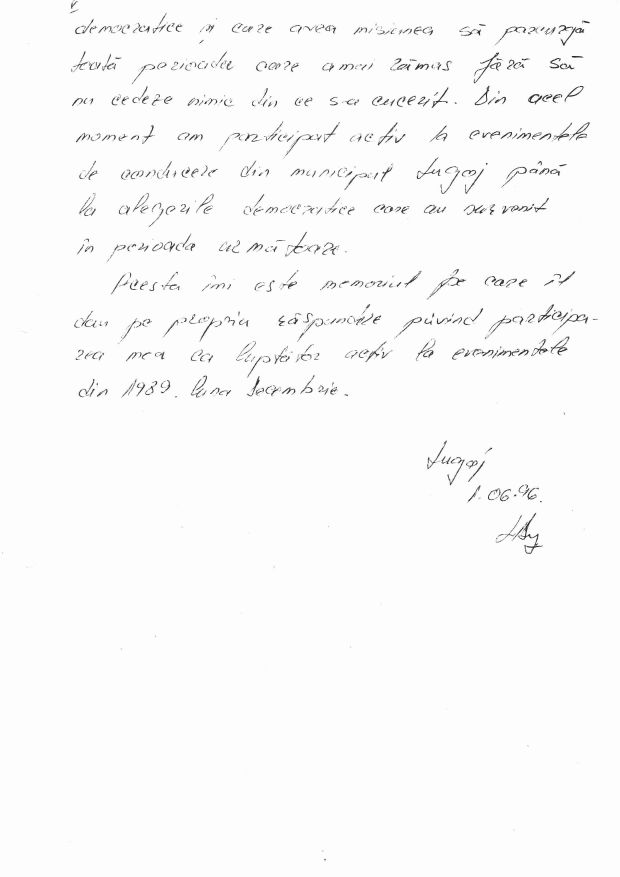 V
democratice și care avea misiunea să parcurgă
toată perioada care a mai rămas fără să
nu cedeze nimic din ce s-a cucerit. Din acel
moment am participat activ la evenimentele
de conducere din municipiul Lugoj până
la alegerile democratice care au survenit
în perioada următoare.
Acesta îmi este memoriul pe care îl
dau pe propria răspundere privind participa-
rea mea ca luptător activ la evenimentele
din 1989. luna Decembrie.
Lugoj
1.06.96.